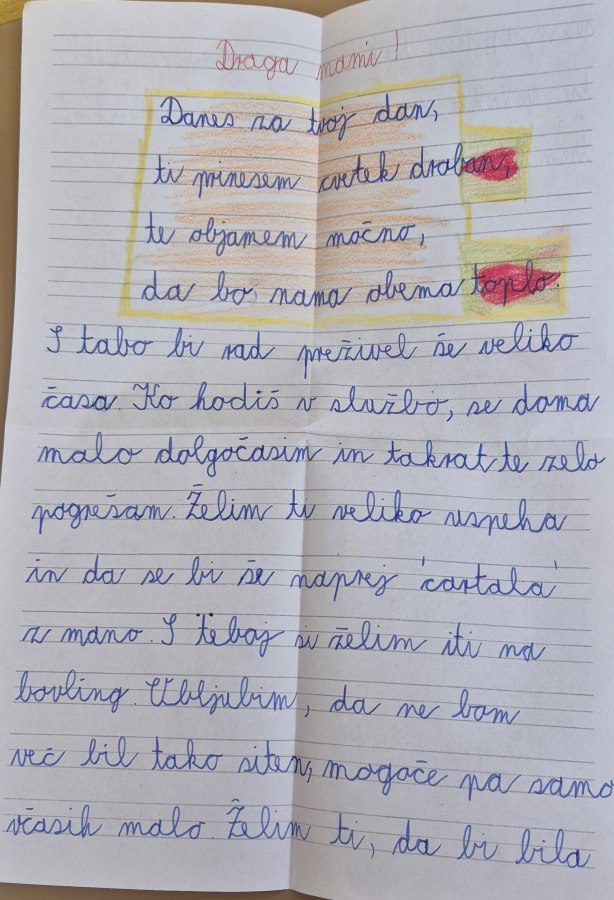 Draga mami!
Danes za tvoj dan,
ti prinesem cvetek droban,
te objamem močno,
da bo nama obema toplo.
S tabo bi rad preživel še veliko
časa. Ko hodiš v službo, se doma
malo dolgočasim in takrat te zelo
pogrešam. Želim ti veliko uspeha
in da se bi še naprej 'cartala'
z mano. S teboj si želim iti na
bovling. Obljubim, da ne bom
več bil tako siten, mogoče pa samo
včasih malo. Želim ti, da bi bila